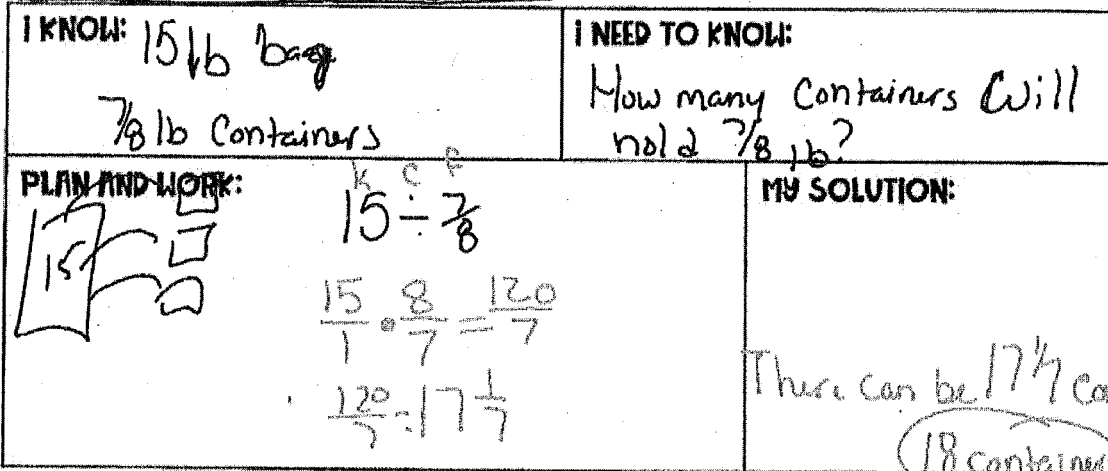 I KNOW: 15 lb bag
7/8 lb Containers
I NEED TO KNOW:
How many Containers Will
hold 7/8 lb?
PLAN AND WORK:
15
K C F
15 ÷ 7/8
15/1 • 8/7 = 120/7
120/7 = 17 1/7
MY SOLUTION:
There can be 17 1/7 Co
18 container